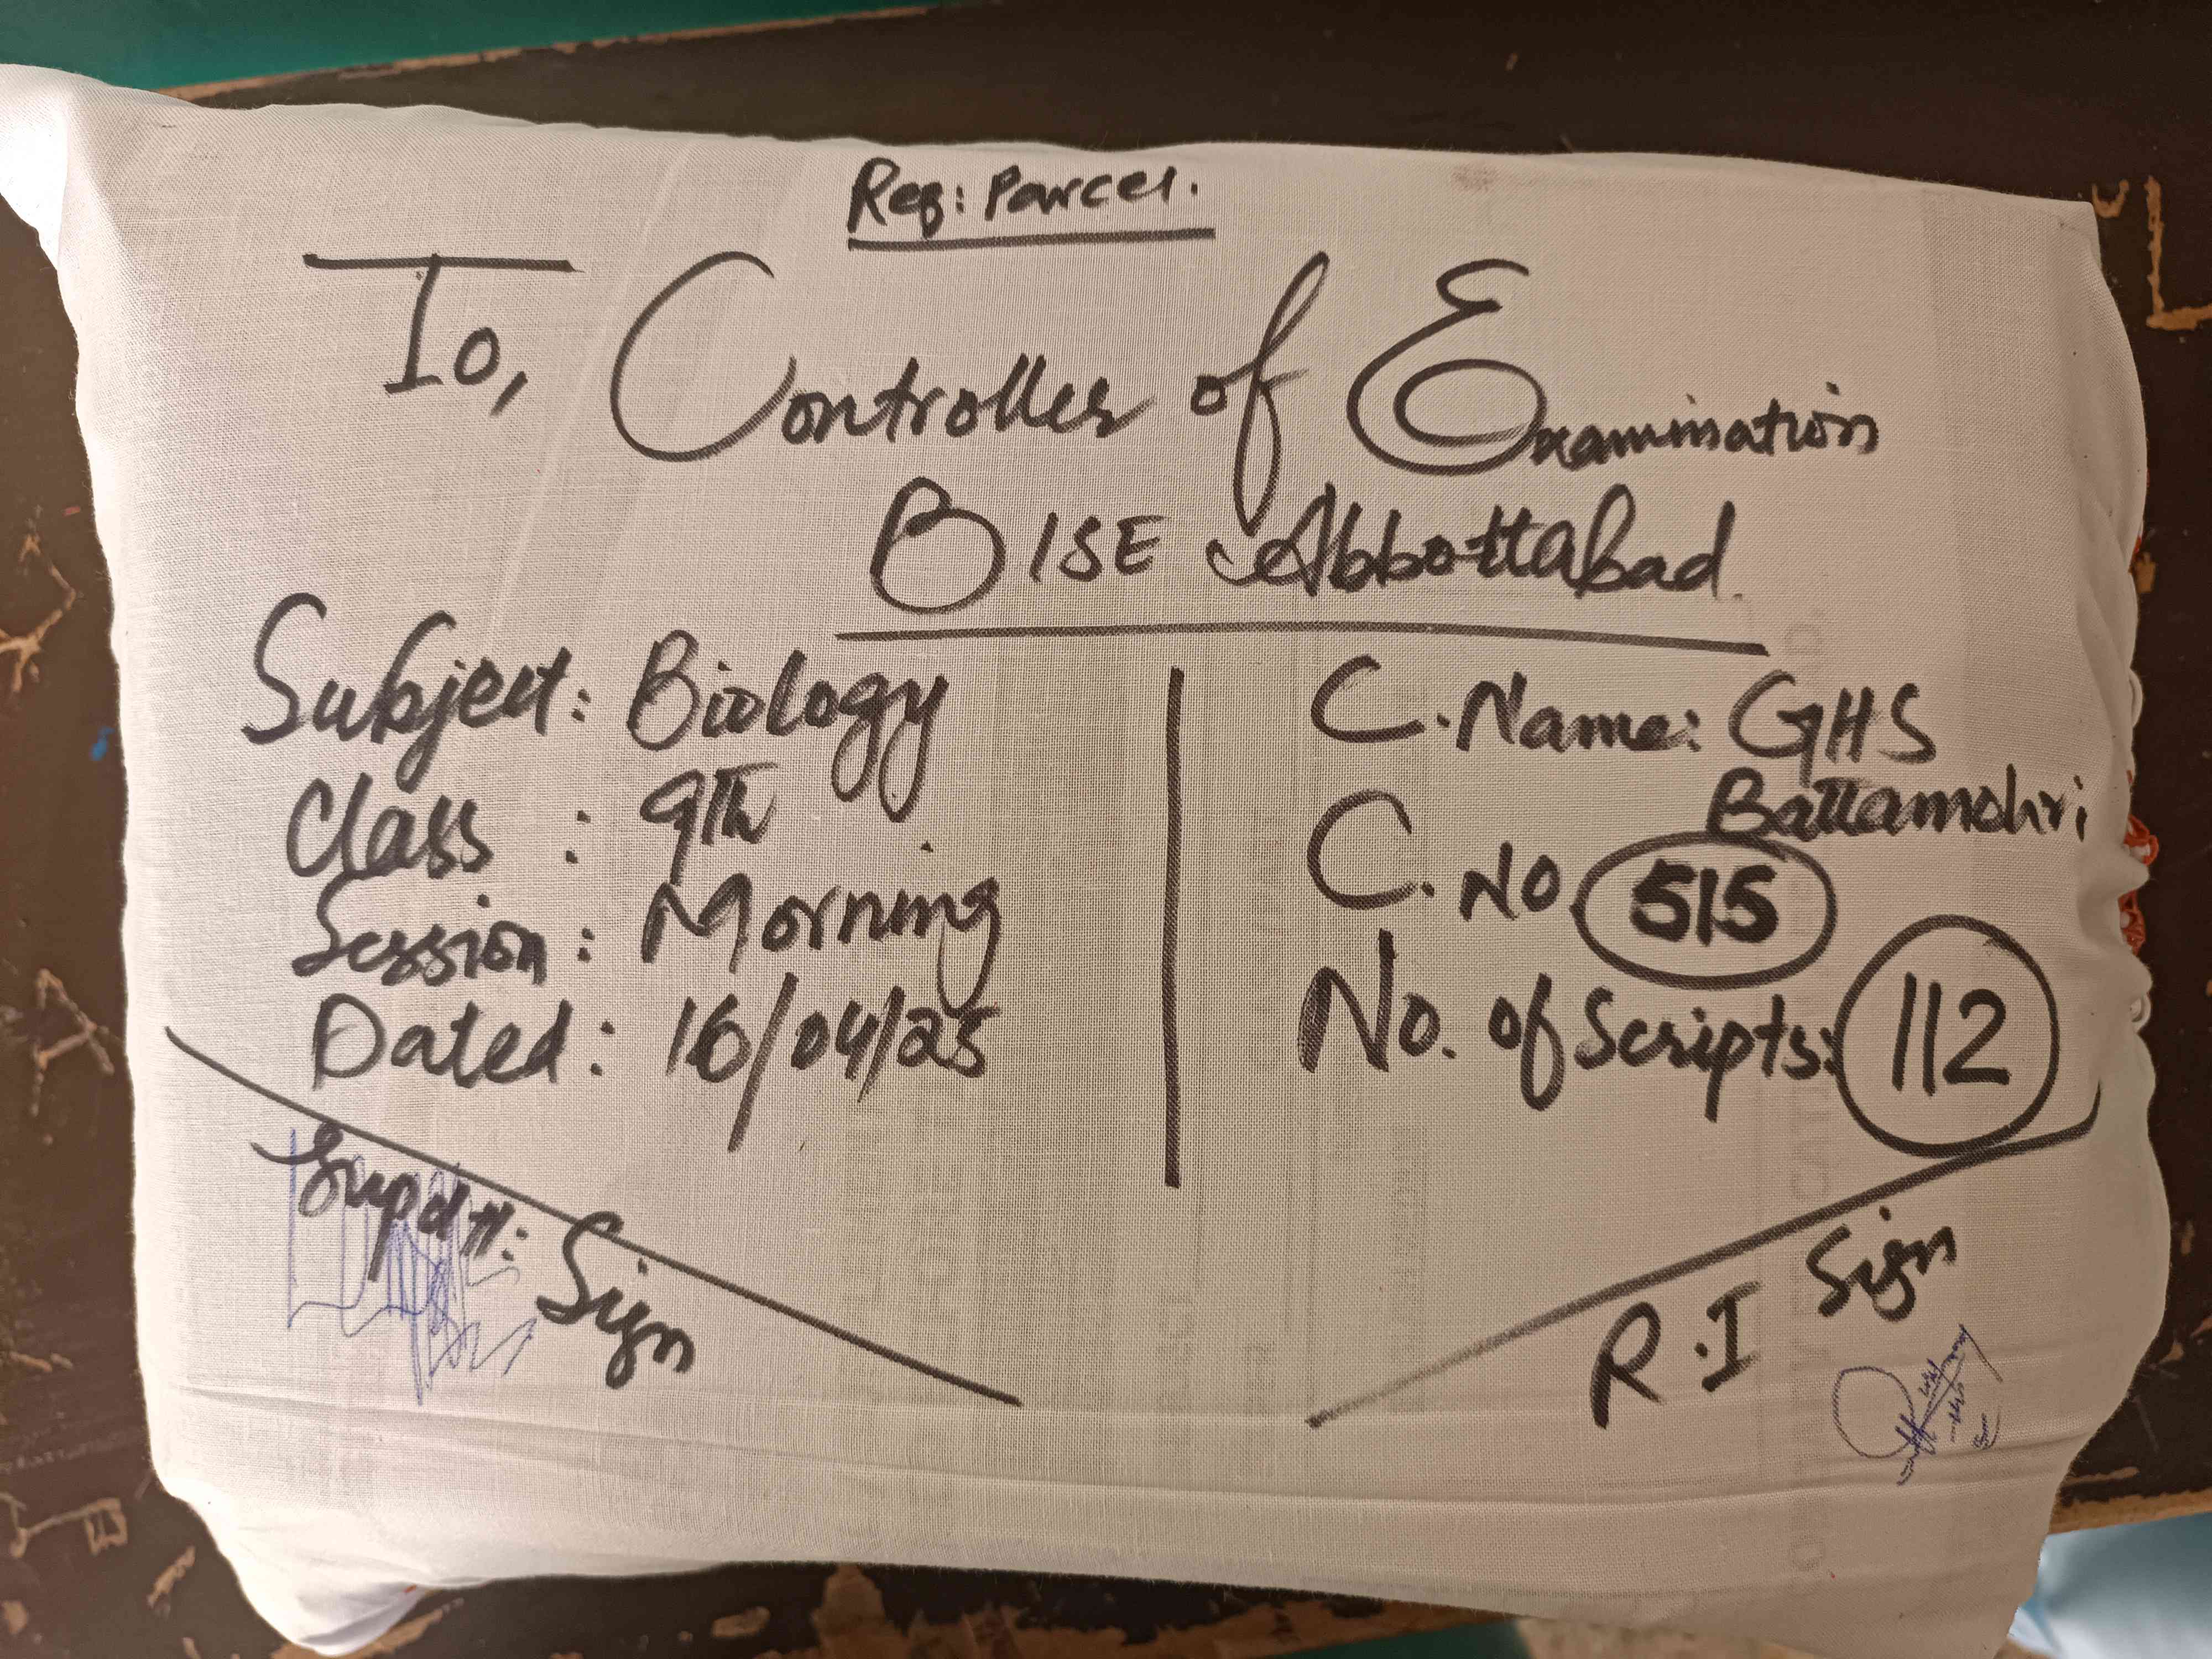 Reg: Parcel.
To, Controller of Examination
BISE Abbottabad.
Subject: Biology
Class : 9th
Session: Morning
Dated: 16/04/25
C. Name: GHS
Battamohri
C. No. 515
No. of Scripts: 112
Supdtt: Sign
R.I Sign